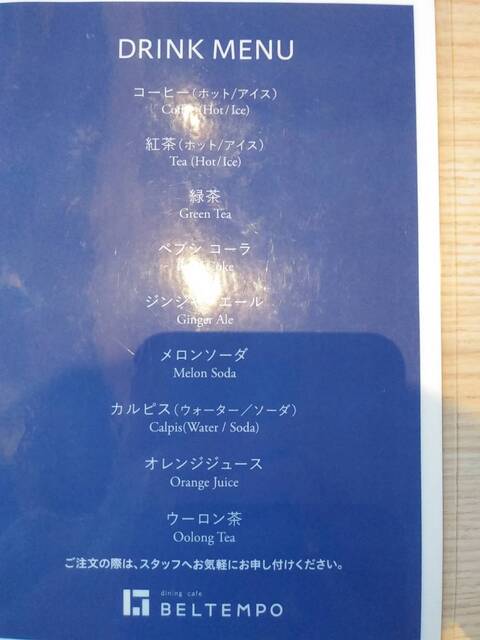 DRINK MENU
コーヒー(ホット/アイス)
Coffee (Hot/Ice)
紅茶(ホット/アイス)
Tea (Hot/Ice)
緑茶
Green Tea
ペプシ コーラ
Coke
ジンジャーエール
Ginger Ale
メロンソーダ
Melon Soda
カルピス(ウォーター/ソーダ)
Calpis(Water / Soda)
オレンジジュース
Orange Juice
ウーロン茶
Oolong Tea
ご注文の際は、スタッフへお気軽にお申し付けください。
dining cafe
BELTEMPO